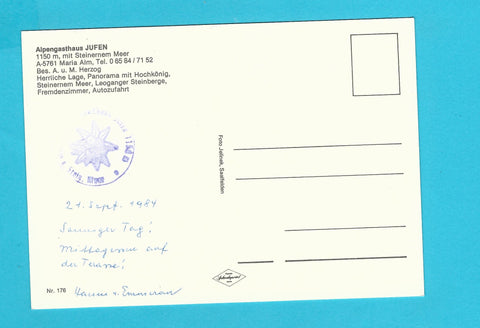 Alpengasthaus JUFEN
1150 m, mit Steinernem Meer
A-5761 Maria Alm, Tel. 0 65 84 / 71 52
Bes. A. u. M. Herzog
Herrliche Lage, Panorama mit Hochkönig,
Steinernem Meer, Leoganger Steinberge,
Fremdenzimmer, Autozufahrt
Foto Jelinek, Saalfelden
21. Sept. 1984
Sonniger Tag!
Mittagessen auf
der Terasse!
Hanne u. Emmerian
Nr. 176